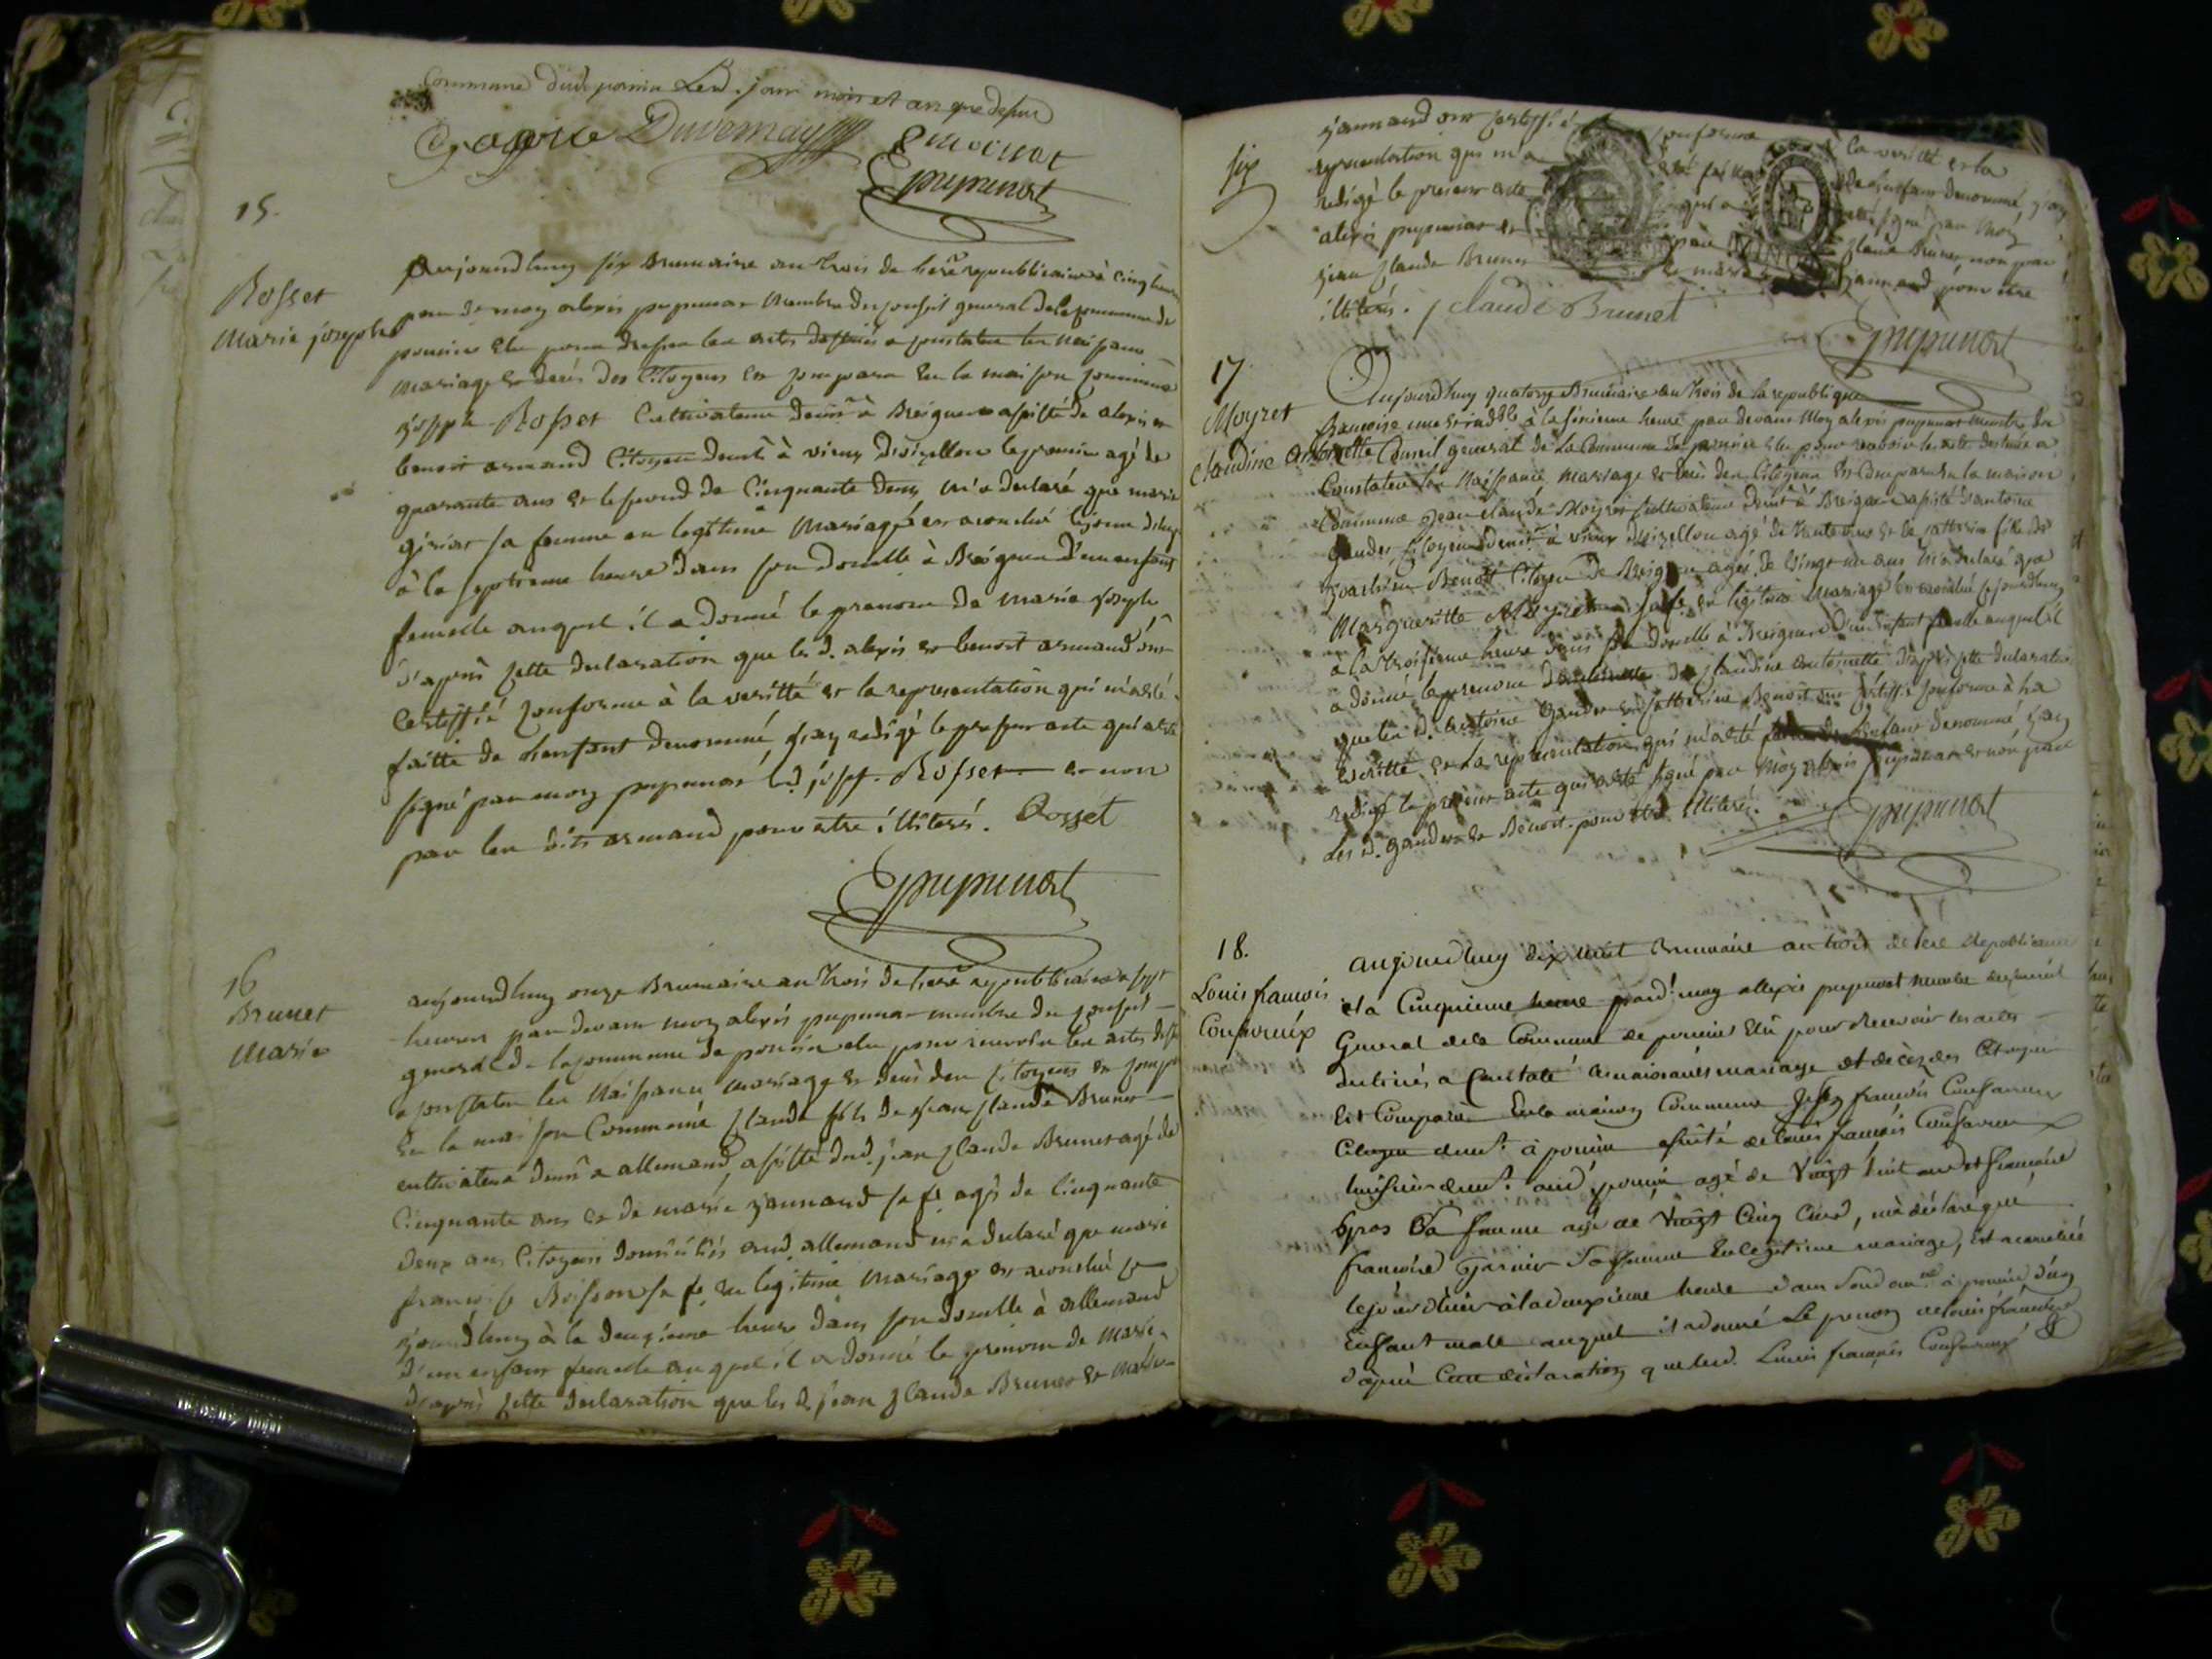 Commune dud. poncin Led. jour mois et an que dessus
Duvernay
pupunat
15.
Rosset
Marie joseph
Aujourdhuy six Brumaire an trois de l'ere republicaine à cinq heures
par de moy alexis pupunat Membre du Conseil general de la commune de
poncin elu pour dresser les actes destinés a constater les Naissances
Mariage & decès des Citoyens est comparu en la maison commune
joseph Rosset Cultivateur demt à Breignes assisté de alexis et
benoit armand Citoyen demt à vieux dizellon le premier agé de
quarante ans et le second de Cinquante deux, m'a declaré que marie
sa femme en legitime Mariage est accouché
à la septieme heure dans son domlle à Breignes d'un enfant
femelle auquel il a donné le prenom de Marie joseph
D'après cette declaration que les d. alexis et benoit armand ont
Certiffié Conforme à la veritté et la representation qui m'a été
faitte de l'enfant denommé, j'ay redigé le present acte qui a été
signé par moy pupunat led. joseph Rosset et non
par les dits armand pour etre illiterés. Rosset
pupunat
16
Brunet
Marie
aujourdhuy onze Brumaire an trois de l'ere republicaine a sept
heures par devant moy alexis pupunat membre du conseil
general de la commune de poncin elu pour recevoir les actes
a constater les Naissances, mariage & decès des citoyens est
en la maison Commune Claude fils de jean Claude Brunet
cultivateur demt a allemand, assisté dud. jean Claude Brunet agé de
Cinquante ans et de marie jannand sa fe agée de Cinquante
deux ans Citoyens domiciliés aud. allemand m'a declaré que marie
françoise Boisson sa fe en legitime Mariage est accouché ce
jourdhuy à la deuxieme heure dans son domlle à allemand
d'un enfant femelle auquel il a donné le prenom de Marie.
D'après cette declaration que les d. jean Claude Brunet & Marie
six
jannand ont certiffié conforme à la veritté et la
representation qui m'a été faitte de l'enfant denommé, j'ay
redigé le present acte qui a été signé par Moy
alexis pupunat et par Claude Brunet non par
jean Claude Brunet & marie jannand pour etre
illiterés. Claude Brunet
pupunat
17.
Moyret
Claudine antoinette
Aujourdhuy quatorze Brumaire an trois de la republique
françoise une et indble à la sixieme heure par devant Moy alexis pupunat membre du
Conseil general de la Commune de poncin elu pour recevoir les acte destinés a
Constater les Naissance, Mariage & decès des Citoyens est Comparu en la maison
Commune jean claude Moyret Cultivateur demt à Breignes assisté d'antoine
gander, Citoyen demt à vieux dizellon agé de trente ans et de catterine fille de
Benoit Citoyen de Breignes agée de vingt un ans m'a declaré que
Margueritte sa fe en legitime Mariage est accouché cejourdhuy
à la troisieme heure dans son domlle à Breignes d'un enfant femelle auquel il
a donné le prenom de Claudine antoinette D'après cette declaration
que les d. antoine gander et catterine Benoit ont certiffié conforme à la
veritté et la representation qui m'a été faitte de l'enfant denommé j'ay
redigé le present acte qui a été signé par Moy alexis pupunat et non par
les d. gander et Benoit pour etre illiterés.
pupunat
18.
Louis françois
aujourdhuy dix huit Brumaire an trois de l'ere Republicaine
et a Cinquieme heure pard. moy allexis pupunat membre du conseil
General de la Commune de poncin Elû pour Recevoir les actes
destinés a Constaté les naissances mariage et decès des Citoyens
Est Comparu En la maison Commune françois
Citoyen demt. à poncin assisté de louis françois
demt. aud. poncin agé de Vingt huit ans et françoise
gros Sa femme agé de Vingt Cinq ans, m'a déclaré que
françoise garnier Sa femme En legitime mariage, Est accouchée
le jour d'hier à la deuxieme heure dans Son domlle à poncin d'un
Enfant male auquel il a donné Le prenom de louis françois
d'après Cette déclaration que led. Louis françois